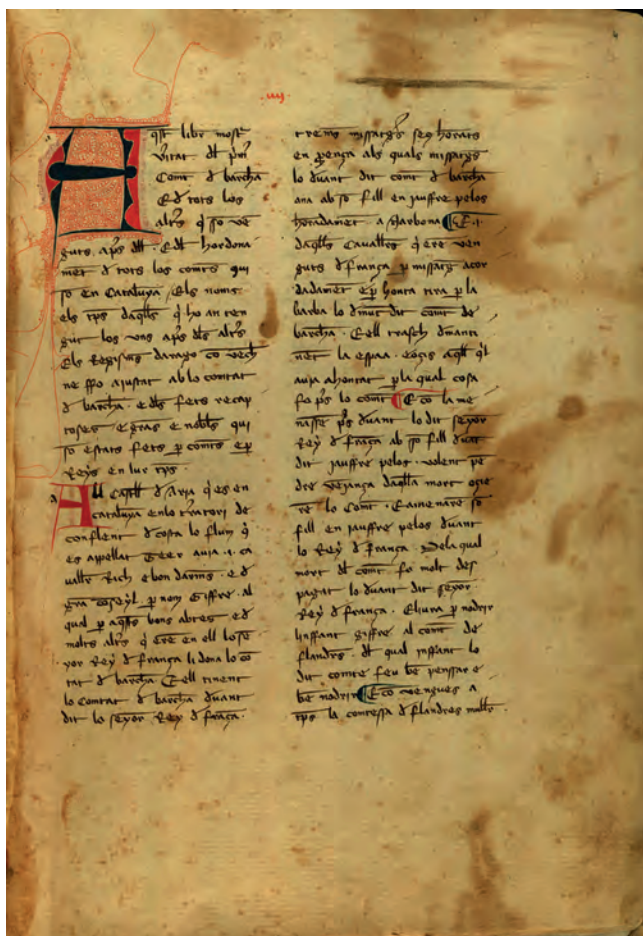 iiij
Aqst libr mostr
vritat dl pmr
Comt d barcha
E d tots los
altrs q sso ve
guts aps dll. E dl hordona
met d tots los comts qui
so en Cataluya / Els noms
els tps daqlls q ho an ten
gut los vns aps dls altrs
Els Regisms darago co vech
ne ffo aiustat ab lo comtat
d barcha. e dls fets recap
toses e gras e nobls qui
so estats fets p comts e p
Reys en lur tps.
All Castll d Arja q es en
cataluya en lo tratori de
conflent d costa lo flum q
es appellat Teer auia .i. ca
vallr Rich e bon darms. e d
gra coseyl. p nom Giffre. al
qual p aqsts bons abtes. e d
molts altrs q ere en ell lo se
yor Rey d frança li dona lo co
tat d barcha. E ell tinent
lo Comtat d barcha duant
dit lo seyor Rey d fraça.
trems missatgs seus honrats
en pença als quals missatgs
lo duant dit comt d barcha
ana ab so fill en jauffre pelos
honradamet. a Narbona E .i.
daqlls Cavallrs q ere ven
guts d frança p missatg acor
dadamet e p honta tira p la
barba lo dmut dit comt de
barcha. E ell trasch dmanti
net la espaa. e ocis aqll ql
auia ahontat p la qual cosa
fo ps lo comt E co la me
nasse ps duant lo dit seyor
Rey d fraça ab so fill duat
dit jauffre pelos. volent pe
dre vejança daqlla mort ocie
re lo Comt. E amenare so
fill en jauffre pelos duant
lo Rey d frança. Dela qual
mort dl comt fo molt des
pagat lo duant dit seyor.
Rey d frança. E liura p nodrir
linffant giffre al comt de
flandrs. dl qual inffant lo
dit comte feu be penssar e
be nodrir E co vengues a
tps la contessa d flandres mullr